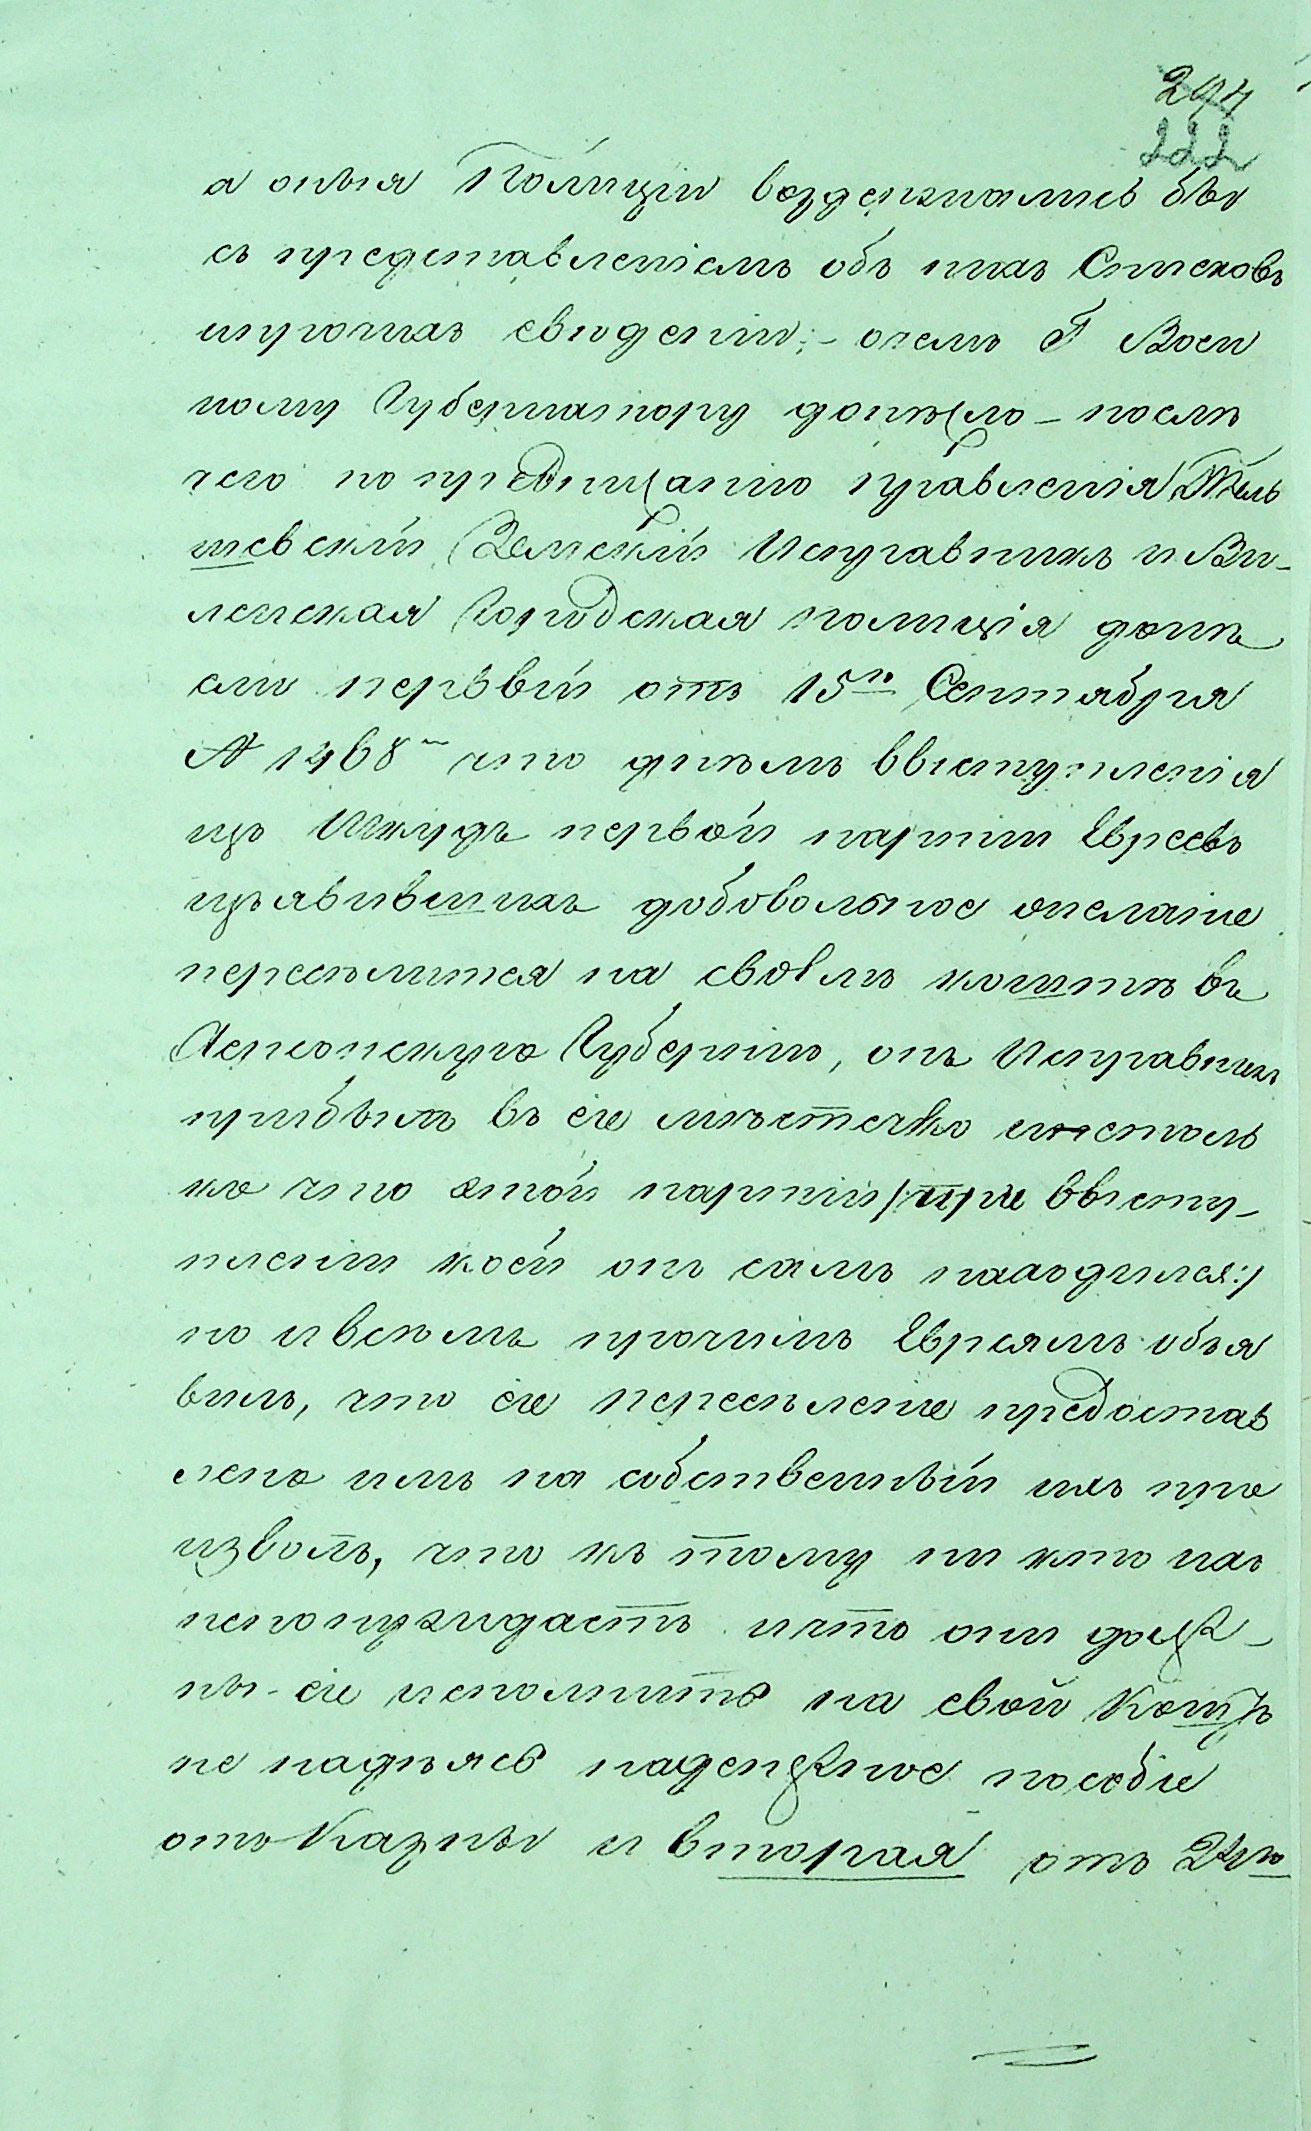 294
222
а оныя Полиціи воздержались бы
съ представленіемъ объ нихъ Списковъ
ипрочихъ свѣденій; – очемъ Г Воен
ному Губернатору донѣсло – послѣ
чего по предписанію правленія Тель
шевскій Земскій Исправникъ и Ви-
ленская Городская полиція донѣ
сли первый отъ 15го Сентября
№ 1468 что днѣмъ ввыступленія
изъ Шкудъ первой партіи Евреевъ
изъявившихъ добовольное желаніе
переселится на своемъ коштѣ въ
Херсонскую Губернію, онъ Исправникъ
прибылъ въ сіе мѣстечко инестоль
ко что этой партіи /:при ввысту-
пленіи коей онъ самъ находился:/
но ивсѣмъ прочимъ Евреямъ объя
вилъ, что сіе переселеніе предостав
лено имъ на собственный ихъ про
изволъ, что къ тому ни кто ихъ
непонуждаетъ ичто они долж-
ны сіе исполнить на свой Коштъ
не надѣясь надежное пособіе
отъ Казны и вторая отъ 24го